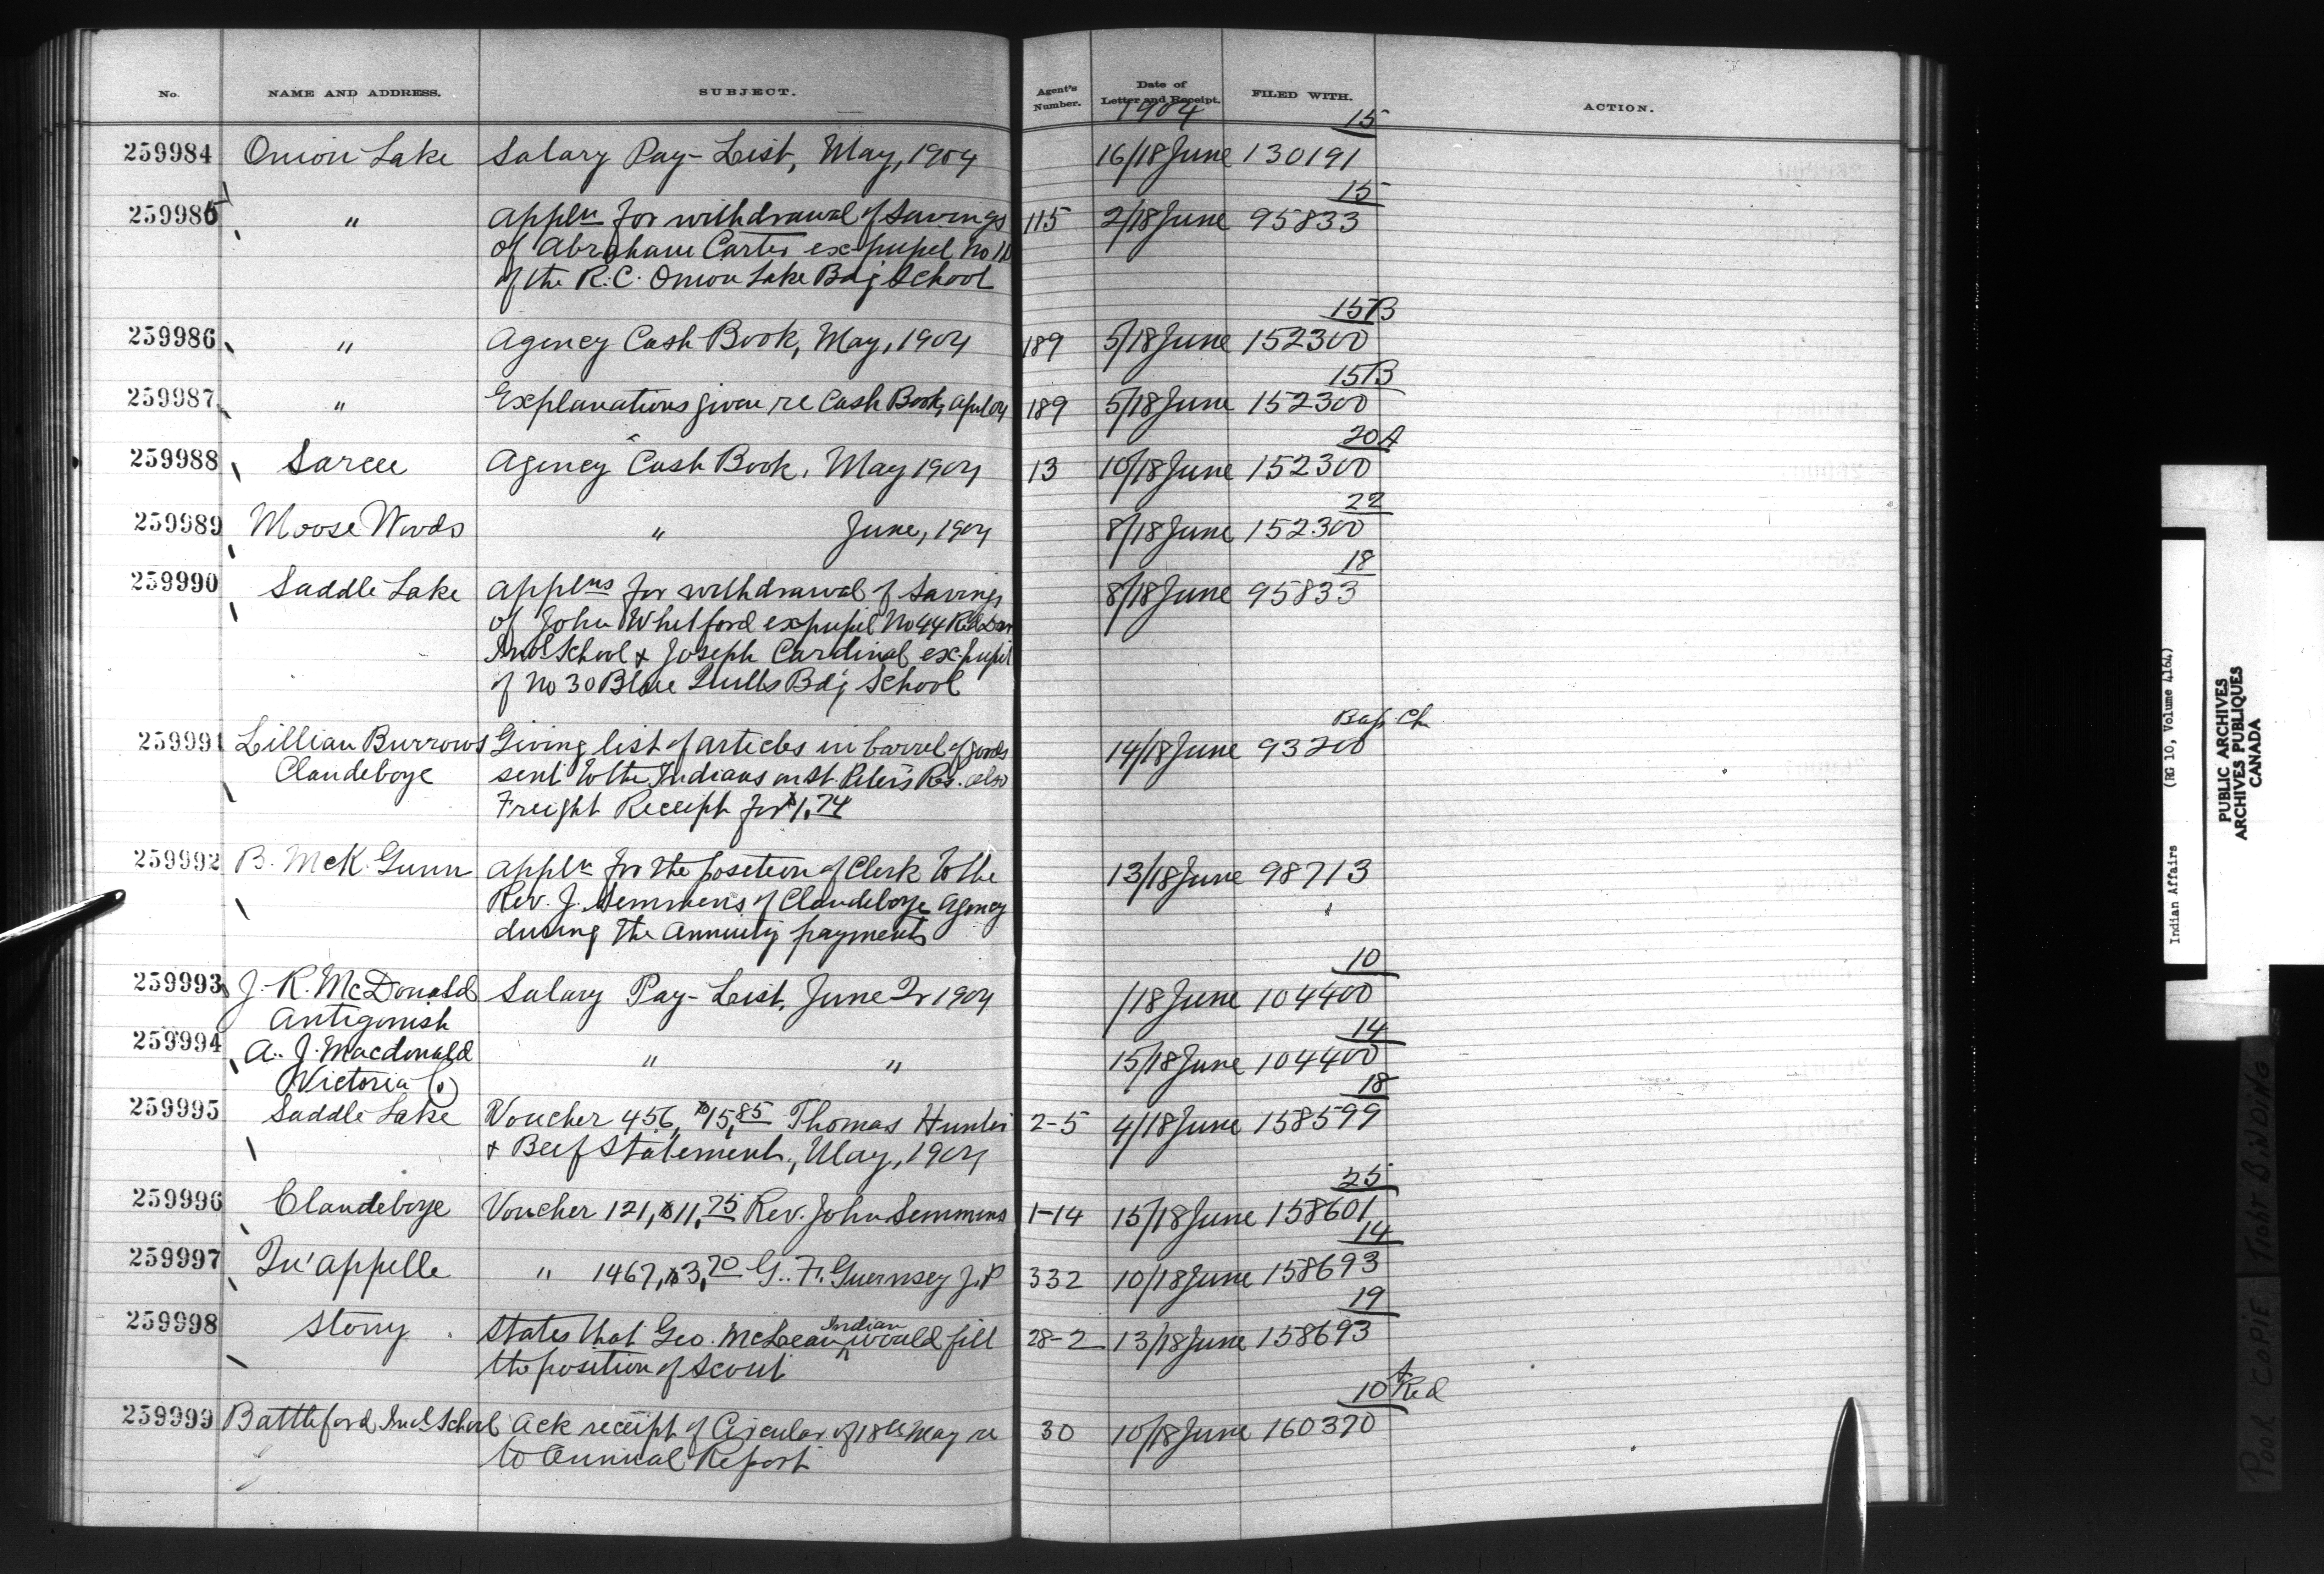 No. NAME AND ADDRESS. SUBJECT. Agent's Number. Date of Letter and Receipt. FILED WITH. ACTION.
1904 15
259984 Onion Lake Salary Pay-List, May, 1904 16/18 June 130191
15
259985 " Appln for withdrawal of Savings 115 2/18 June 95833
of Abraham Carter ex-pupil No
of the R.C. Onion Lake Bdg School
15B
259986 " Agency Cash Book, May, 1904 189 5/18 June 152300
15B
259987 " Explanations given re Cash Book, April 04 189 5/18 June 152300
20A
259988 Sarcee Agency Cash Book, May 1904 13 10/18 June 152300
22
259989 Moose Woods " June, 1904 8/18 June 152300
18
259990 Saddle Lake Applns for withdrawal of Savings 8/18 June 95833
of John Whitford ex pupil No 44 Red Deer
Indl School & Joseph Cardinal ex-pupil
of No 30 Blue Quills Bdg School
Bap. Ch
259991 Lillian Burrows Giving list of articles in barrel of goods 14/18 June 93200
Clandeboye sent to the Indians on St. Peter's Res. also
Freight Receipt for $1.74
259992 B. McK. Gunn Appln for the position of Clerk to the 13/18 June 98713
Rev. J. Semmens of Clandeboye Agency
during the Annuity payments
10
259993 J. R. McDonald Salary Pay-List, June Qr 1904 /18 June 104400
Antigonish
14
259994 A. J. Macdonald " " 15/18 June 104400
Victoria Co
18
259995 Saddle Lake Voucher 456, $15.85 Thomas Hunter 2-5 4/18 June 158599
& Beef Statement, May, 1904
25
259996 Clandeboye Voucher 121, $11.75 Rev. John Semmens 1-14 15/18 June 158601
14
259997 Qu'appelle " 1467, $3.70 G. F. Guernsey J.P 332 10/18 June 158693
19
259998 Stony States that Geo. McLean Indian would fill 28-2 13/18 June 158693
the position of Scout
10 A Red
259999 Battleford Indl School Ack receipt of Circular of 18th May re 30 10/18 June 160370
to Annual Report
Indian Affairs (RG 10, Volume 4164)
PUBLIC ARCHIVES
ARCHIVES PUBLIQUES
CANADA
POOR COPIE TIGHT BINDING